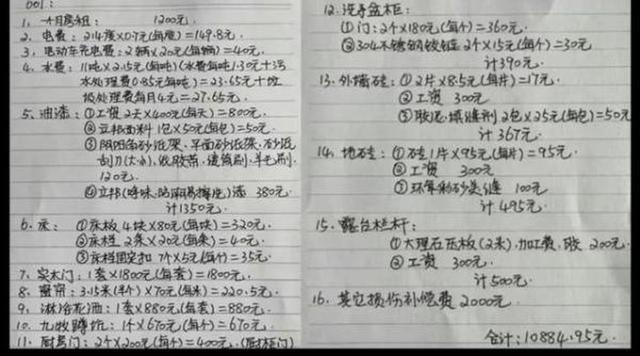 001:
1. 一个月房租: 1200元.
2. 电费: 214度×0.7元(每度)=149.8元.
3. 电动车充电费: 2辆×20元(每辆)=40元.
4. 水费: 11吨×2.15元(每吨)(水费每吨1.30元+污
水处理费0.85元每吨)=23.65元+垃
圾处理费每月4元=27.65元.
5. 油漆: ①工资2天×400元(每天)=800元.
②立邦面料1包×50元(每包)=50元.
③阴阳角砂纸架、平面砂纸架、砂纸
刮刀(大小)、滚筒刷、羊毛刷,
120元.
④立邦漆 380元.
计1350元.
6. 床: ①床板 4块×80元(每块)=320元.
②床档 2条×20元(每条)=40元.
③床档固定扣 7个×5元(每个)=35元.
7. 实木门: 1套×1800元(每套)=1800元.
8. 窗帘: 3.15米(半个)×70元(每米)=220.5元.
9. 淋浴花洒: 1套×880元(每套)=880元.
10. 九牧蹲坑: 1个×670元(每个)=670元.
11. 厨房门: 2个×200元(每个)=400元.(厨柜门)
12. 洗手盆柜:
①门: 2个×180元(每个)=360元.
②304不锈钢铰链 2个×15元(每个)=30元
计390元.
13. 外墙砖: ①2片×8.5元(每片)=17元.
②工资 300元.
③胶泥、填缝剂 2包×25元(每包)=50元
计367元.
14. 地砖: ①砖1片×95元(每片)=95元.
②工资 300元
③环氧彩砂美缝 100元
计495元.
15. 露台栏杆:
①大理石压板(2米)、加工费、胶 200元.
②工资 300元.
计500元.
16. 其它损伤补偿费 2000元.
合计: 10884.95元.